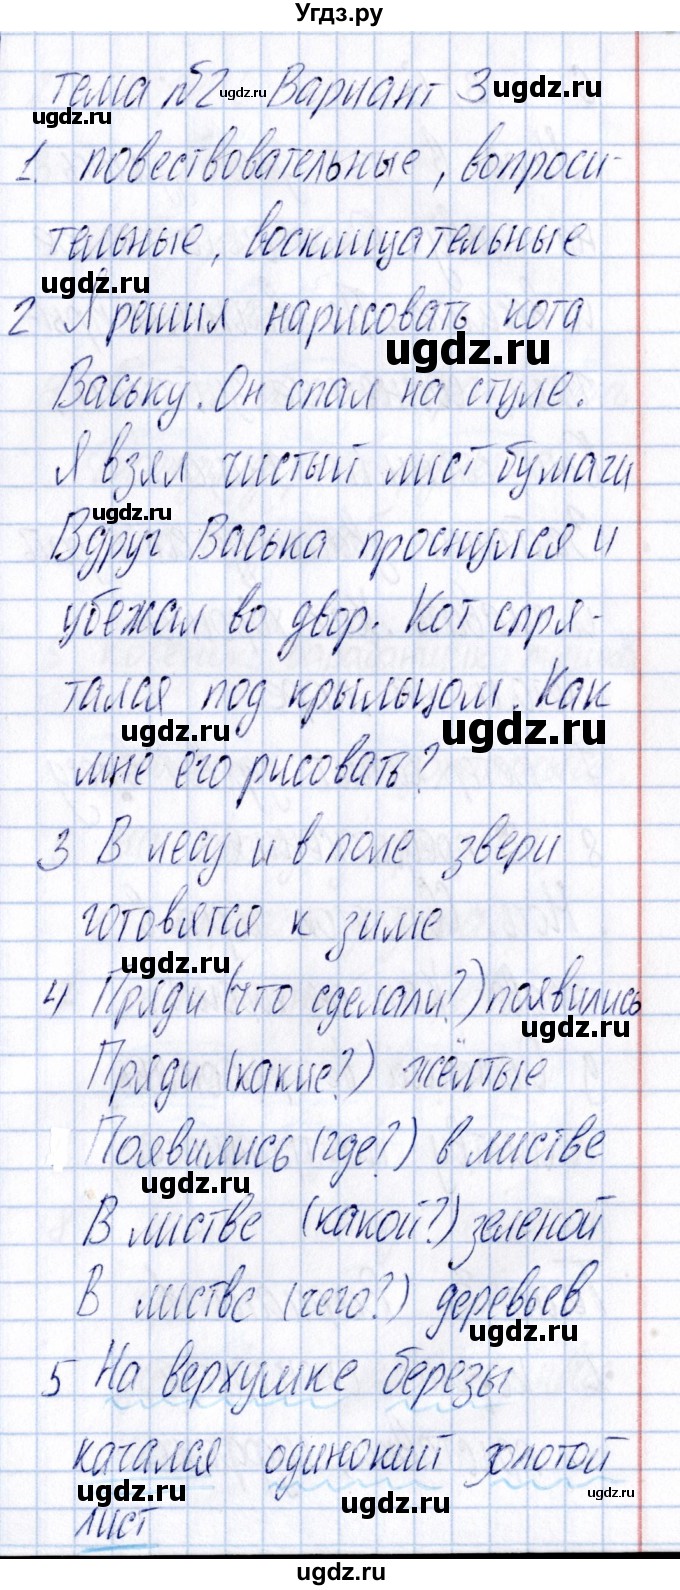 Угдз.ру
Тема №2 Вариант 3
1. повествовательные, вопроси-
тельные, восклицательные
2 Я решил нарисовать кота
Ваську. Он спал на стуле.
Я взял чистый лист бумаги
Вдруг Васька проснулся и
убежал во двор. Кот спря-
тался под крыльцом. Как
мне его рисовать?
3 В лесу и в поле звери
готовятся к зиме
4 Пряди (что сделали?) появились
Пряди (какие?) жёлтые
Появились (где?) в листве
В листве (какой?) зеленой
В листве (чего?) деревьев
5 На верхушке березы
качался одинокий золотой
лист
ugdz.ru